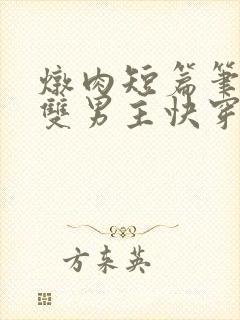 燉肉短篇筆
雙男主快穿
方東英